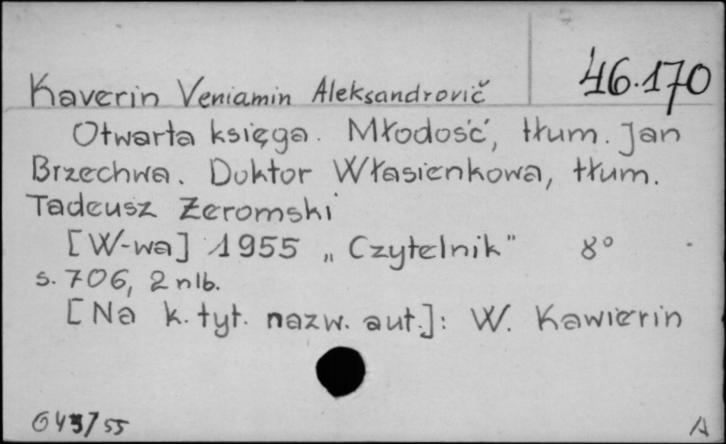 46.170
Kaverin Veniamin Aleksandrovič
Otwarta księga. Młodość, tłum. Jan
Brzechwa. Doktor Własienkowa, tłum.
Tadeusz Żeromski
[W-wa] 1955 „Czytelnik" 8°
s. 706, 2 nlb.
[Na k. tyt. nazw. aut.]: W. Kawierin
A